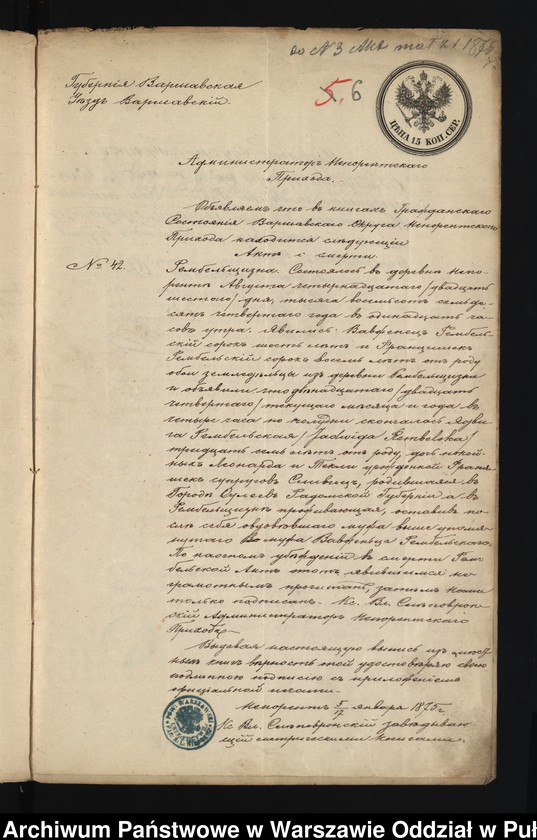 до № 3 Акт
5, 6
Губернія Варшавская
Уѣздъ Варшавскій.
ЦѢНА 15 КОП. СЕР.
Администраторъ Непорентскаго
Прихода.
Объявляемъ что въ книгахъ Гражданскаго
Состоянія Варшавскаго Округа Непорентскаго
Прихода находится слѣдующій
Актъ о смерти
№ 42.
Рембельщизна. Состоялось въ деревнѣ Непо-
рентъ Августа четырнадцатаго /двадцать
шестого/ дня, тысяча восемьсотъ семьде-
сятъ четвертаго года въ одинадцать ча-
совъ утра. Явились: Вавженецъ Рембель-
скій сорокъ шесть лѣтъ и Францишекъ
Рембельскій сорокъ восемь лѣтъ отъ роду
оба земледѣльцы изъ деревни Рембельщизна
и объявили что двѣнадцатаго /двадцать
четвертаго/ текущаго мѣсяца и года въ
четыре часа по полудни скончалась Ядви-
га Рембельская /Jadwiga Rembelska/
тридцать семь лѣтъ отъ роду, дочь покой-
ныхъ Леонарда и Текли урожденной Фране-
шекъ супруговъ родившаяся въ
Городѣ Радомской Губерніи а въ
Рембельщизнѣ проживающая, оставивъ по-
слѣ себя овдовѣвшаго мужа выше упомя-
нутаго мужа Вавженьца Рембельскаго.
По наочномъ убѣжденіи въ смерти Рем-
бельской Актъ этотъ явившимся не-
грамотнымъ прочитанъ, затѣмъ нами
только подписанъ. Кс. Вл. Слѣповрон-
скій Администраторъ Непорентскаго
Прихода.
Выдавая настоящую выпись изъ
ныхъ книгъ вѣрность оной удостовѣряю свою
подлинною подписью съ приложеніемъ
официальной печати.
Непорентъ 5/17 января 1875 г.
Кс Вл. Слѣповронскій завѣдываю-
щій метрическими книгами.
Archiwum Państwowe w Warszawie Oddział w Puł